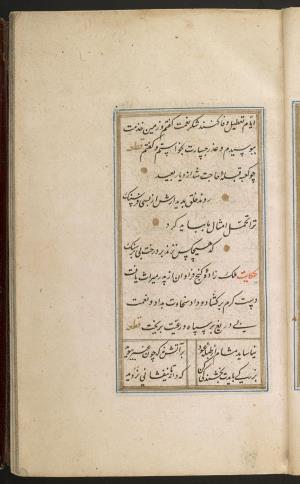 ایام تعطیل وفا کنند شکر نعمت گفتم و زمین خدمت
ببوسیدم و عذر جسارت بخواستم و گفتم قطعه
چو کعبه قبله حاجت شد از دیار بعید
روند خلق بدیدارش از بسی فرسنگ
ترا تحمل امثال ما بباید کرد
که هیچکس نزند بر درخت بی بر سنگ
حکایت ملک زاده گنج فراوان از پدر میراث یافت
دست کرم برگشاد و داد سخاوت بداد و نعمت
بی دریغ بر سپاه و رعیت بریخت قطعه
نیاساید مشام از طبله عود بر آتش نه که چون عنبر ببوید
بزرگی بایدت بخشندگی کن که دانه تا نیفشانی نروید